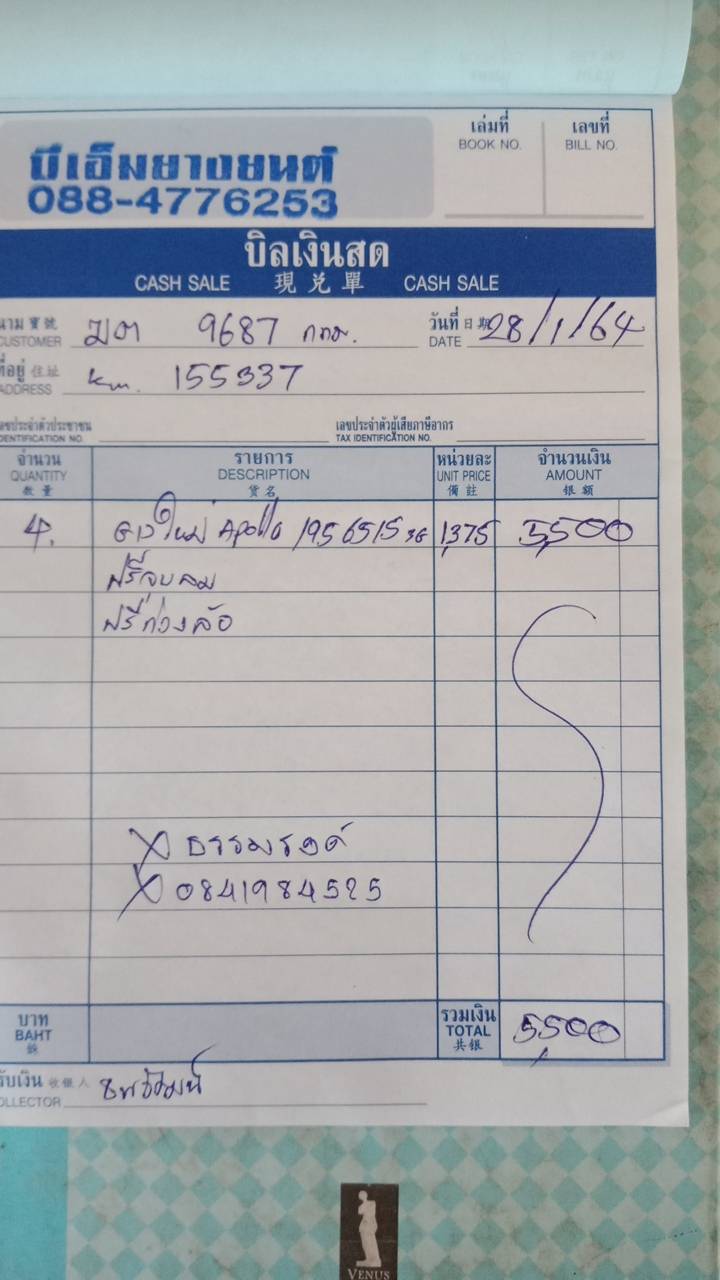 บีเอ็มยางยนต์
088-4776253
เล่มที่ เลขที่
BOOK NO. BILL NO.
บิลเงินสด
CASH SALE 現兌單 CASH SALE
นาม寶號 วันที่日期
CUSTOMER 9687 กทม. DATE 28/1/64
ที่อยู่住址
ADDRESS km. 155337
เลขประจำตัวประชาชน เลขประจำตัวผู้เสียภาษีอากร
IDENTIFICATION NO. TAX IDENTIFICATION NO.
จำนวน รายการ หน่วยละ จำนวนเงิน
QUANTITY DESCRIPTION UNIT PRICE AMOUNT
數量 貨名 備註 銀額
4. ยางใหม่ Apollo 1956515 1,375 5,500
ฟรีจุบลม
ฟรีถ่วงล้อ
X
X 0841984525
บาท รวมเงิน
BAHT TOTAL 5,500
銖 共銀
รับเงิน 收銀人
COLLECTOR
VENUS